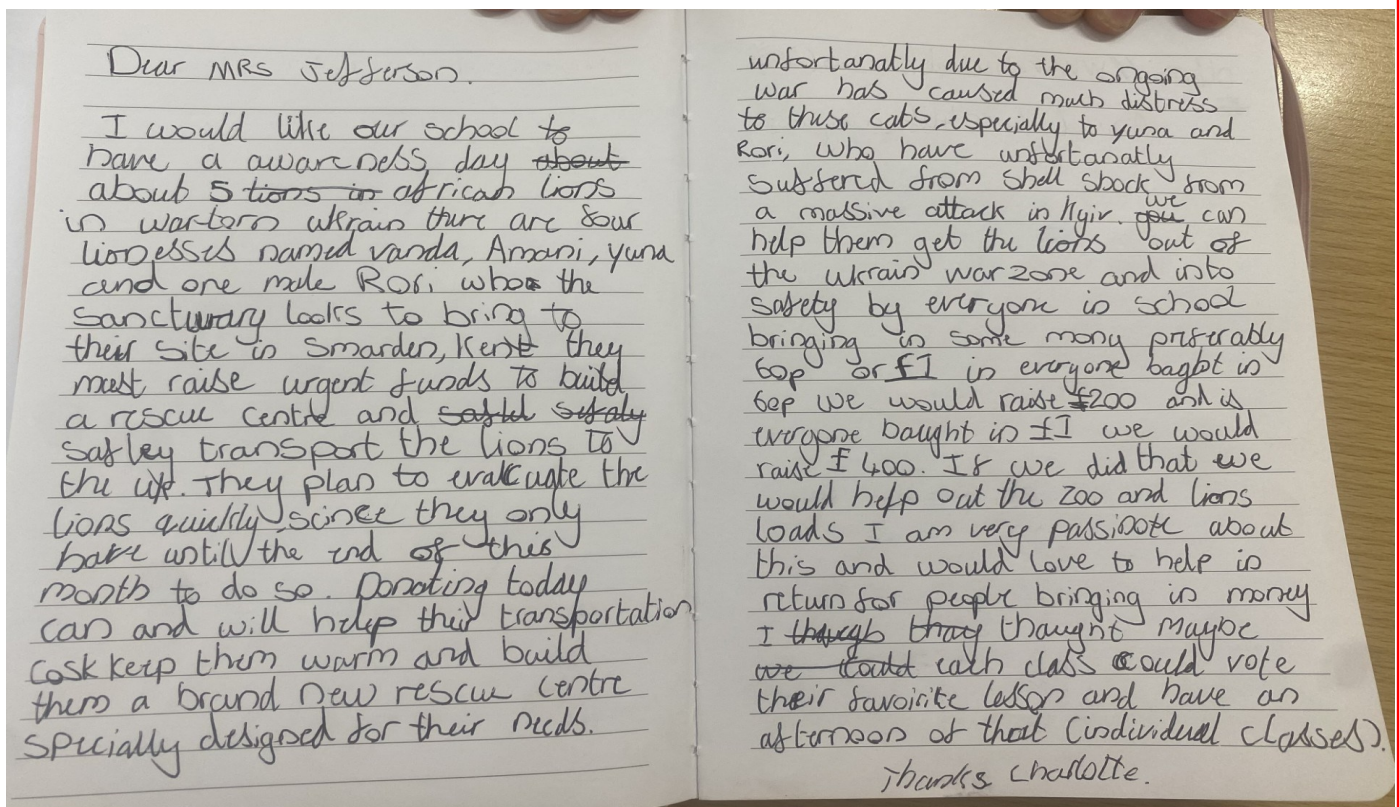 Dear MRS Jefferson.
I would like our school to
have a awareness day about
about 5 lions in african lions
in wartorn ukrain there are four
lionesses named vanda, Amani, yuna
and one male Rori who the
sanctuary looks to bring to
their site in Smarden, Kent they
must raise urgent funds to build
a rescue centre and
safley transport the lions to
the uk. They plan to evacuate the
lions quickly since they only
have until the end of this
month to do so. Donating today
can and will help their transportation
cosk keep them warm and build
them a brand new rescue centre
specially designed for their needs.
unfortanatly due to the ongoing
war has caused much distress
to these cats, especially to yuna and
Rori, who have unfortanatly
suffered from shell shock from
a massive attack in Kyiv. we can
help them get the lions out of
the ukrain warzone and into
safety by everyone in school
bringing in some mony preferably
60p or £1 if everyone baght in
60p we would raise £200 and if
everyone baught in £1 we would
raise £400. If we did that we
would help out the zoo and lions
loads I am very passinote about
this and would love to help in
return for people bringing in money
I thought maybe
we could each class could vote
their favoirite lesson and have an
afternoon of that (individual classes).
Thanks Charlotte.